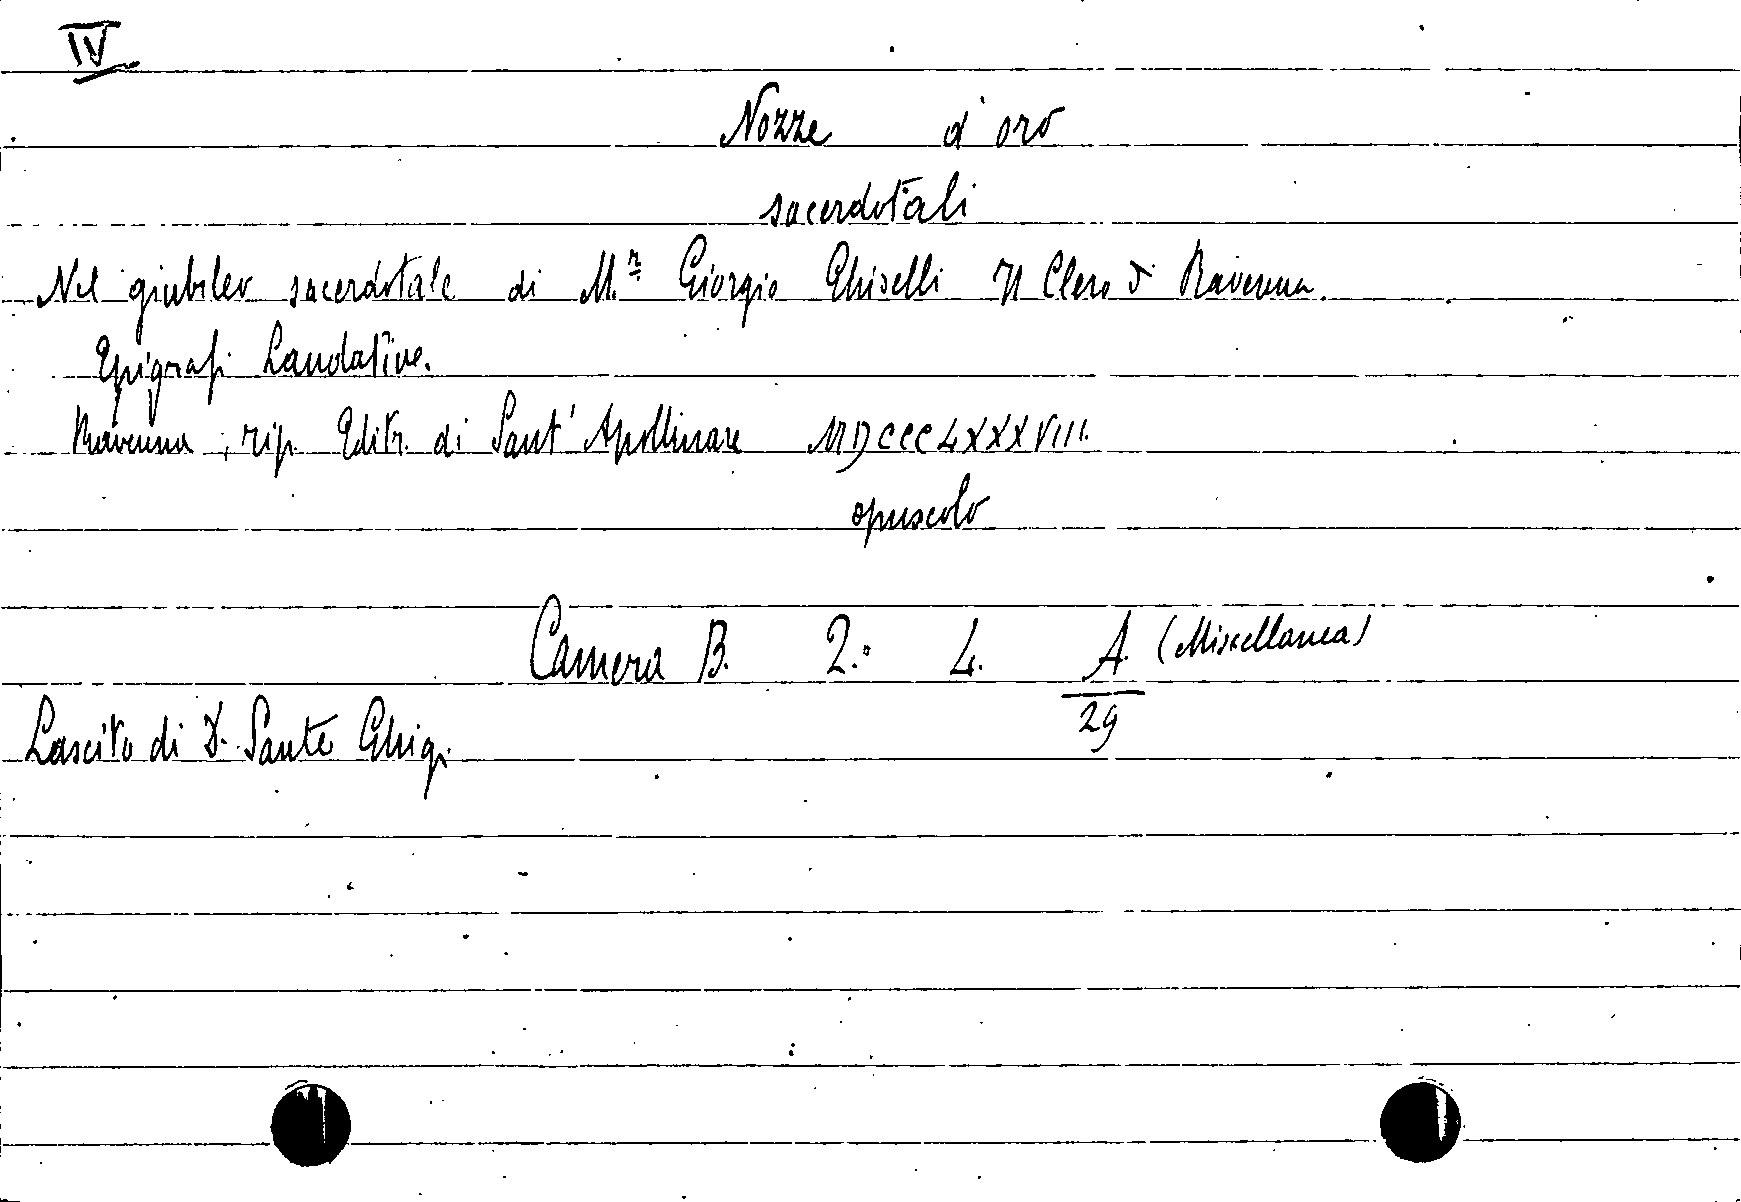 IV
Nozze d'oro
sacerdotali
Nel giubileo sacerdotale di M.r Giorgio Ghiselli Il Clero di Ravenna.
Epigrafi Laudative.
Ravenna, tip. Editr. di Sant' Apollinare MDCCCLXXXVIII.
opuscolo
Camera B. 2.° 4. A. (Miscellanea)
29
Lascito di D. Sante Ghigi